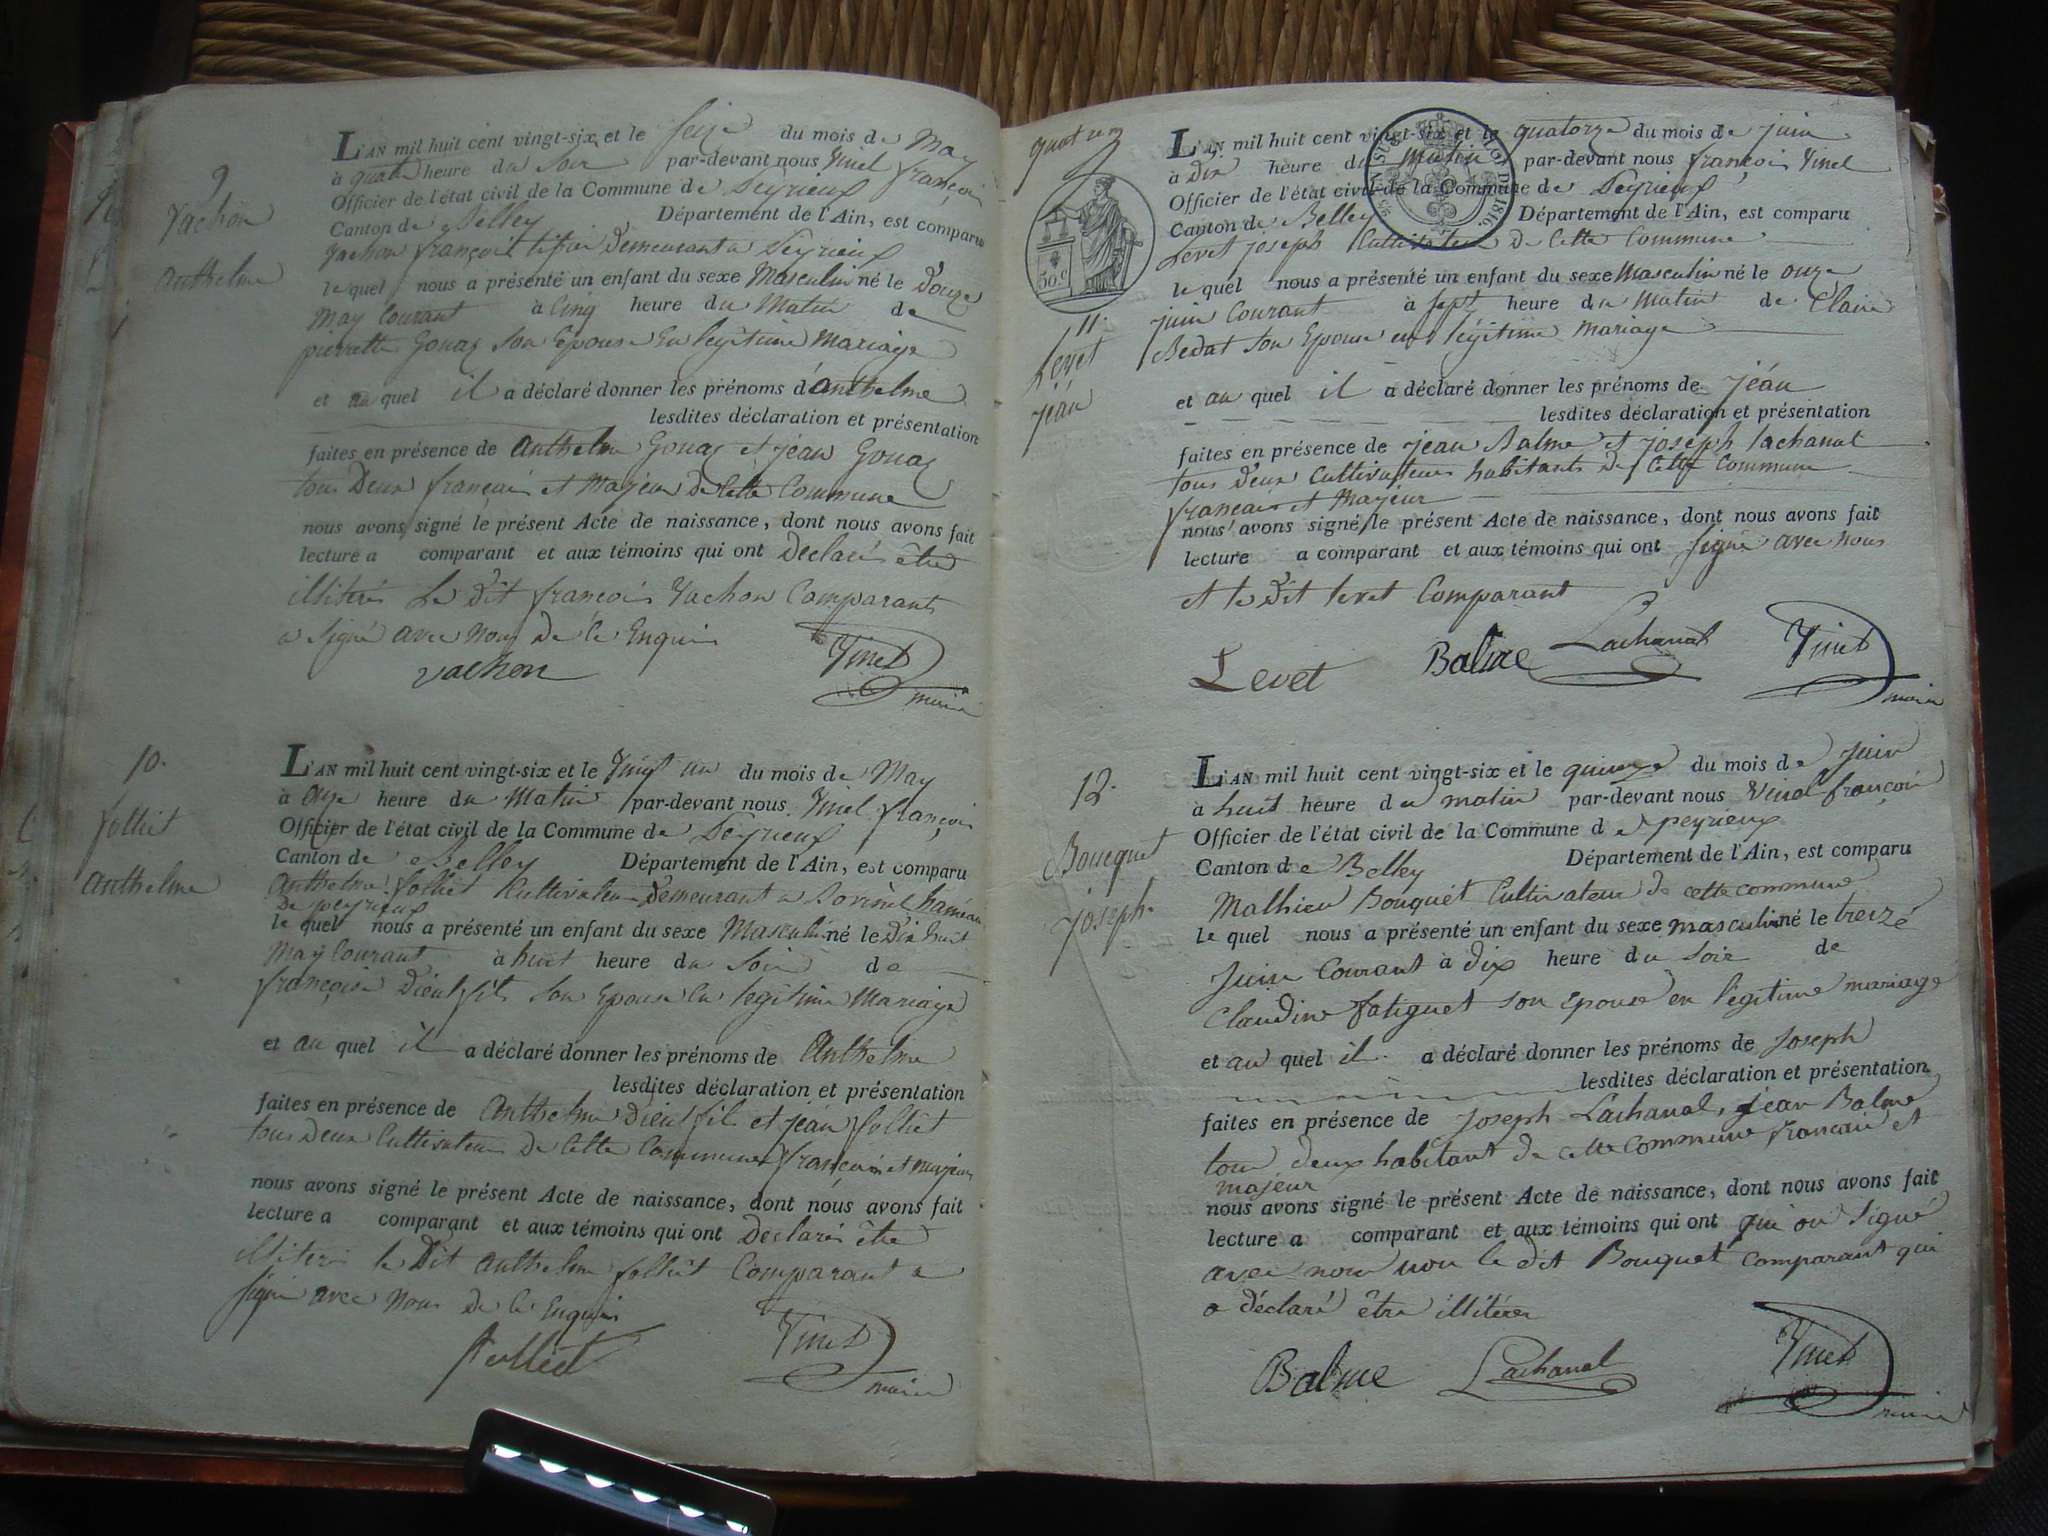 9
Vachon
Anthelme
L'AN mil huit cent vingt-six et le seize du mois de May
à quatre heure du Soir par-devant nous Vinel françois
Officier de l'état civil de la Commune de Peyrieux
Canton de Belley Département de l'Ain, est comparu
Vachon françois demeurant a Peyrieux
le quel nous a présenté un enfant du sexe Masculin né le Douze
May Courant à Cinq heure du Matin de
pierrette Gouaz Son Epouse En legitime Mariage
et au quel il a déclaré donner les prénoms d'anthelme
lesdites déclaration et présentation
faites en présence de anthelme Gouaz et jéan Gouaz
tous Deux français et Majeur de Cette Commune
nous avons signé le présent Acte de naissance, dont nous avons fait
lecture a comparant et aux témoins qui ont Declarés être
illiterés Le Dit françois Vachon Comparant
a Signé avec Nous De Ce Enquis
vachon Vinel
maire
10.
folliet
anthelme
L'AN mil huit cent vingt-six et le Vingt un du mois de May
à onze heure du Matin par-devant nous Vinel françois
Officier de l'état civil de la Commune de Peyrieux
Canton de Belley Département de l'Ain, est comparu
Anthelme folliet Cultivateur Demeurant a hameau
de peyrieux
le quel nous a présenté un enfant du sexe Masculin né le Dix huit
May Courant à huit heure du Soir de
françoise Dieulefils son Epouse En legitime Mariage
et au quel il a déclaré donner les prénoms de Anthelme
lesdites déclaration et présentation
faites en présence de Anthelme Dieulefils et jéan folliet
tous Deux Cultivateurs De Cette Commune français et majeur
nous avons signé le présent Acte de naissance, dont nous avons fait
lecture a comparant et aux témoins qui ont Declarés être
illiterés le Dit Anthelme folliet Comparant a
signé avec Nous De Ce Enquis
folliet Vinel
maire
quatorze
50.c
11.
Levet
jéan
L'AN mil huit cent vingt-six et le quatorze du mois de juin
à Dix heure du matin par-devant nous françois Vinel
Officier de l'état civil de la Commune de Peyrieux
Canton de Belley Département de l'Ain, est comparu
Levet joseph Cultivateur De Cette Commune
le quel nous a présenté un enfant du sexe Masculin né le onze
juin Courant à sept heure du Matin de Claire
Bedat son Epouse en légitime Mariage
et au quel il a déclaré donner les prénoms de jéan
lesdites déclaration et présentation
faites en présence de jean Balme et joseph lachanal
tous Deux Cultivateurs habitants De Cette Commune
français et Majeur
nous avons signé le présent Acte de naissance, dont nous avons fait
lecture a comparant et aux témoins qui ont signé avec nous
et le Dit levet Comparant
Levet Balme Lachanal Vinel
maire
12.
Boucquet
joseph.
L'AN mil huit cent vingt-six et le quinze du mois de juin
à huit heure du matin par-devant nous vinel françois
Officier de l'état civil de la Commune de peyrieux
Canton de Belley Département de l'Ain, est comparu
Mathieu Bouquet Cultivateur de cette commune
le quel nous a présenté un enfant du sexe masculin né le treizé
juin Courant à dix heure du soir de
Claudine fatiguet son Epouse en légitime mariage
et au quel il a déclaré donner les prénoms de joseph
lesdites déclaration et présentation
faites en présence de joseph Lachanal, jéan Balme
tous deux habitant de cette commune francais et
majeur
nous avons signé le présent Acte de naissance, dont nous avons fait
lecture a comparant et aux témoins qui ont qui on signé
avec nous non le dit Bouquet comparant qui
a déclaré être illitérer
Balme Lachanal Vinel
maire